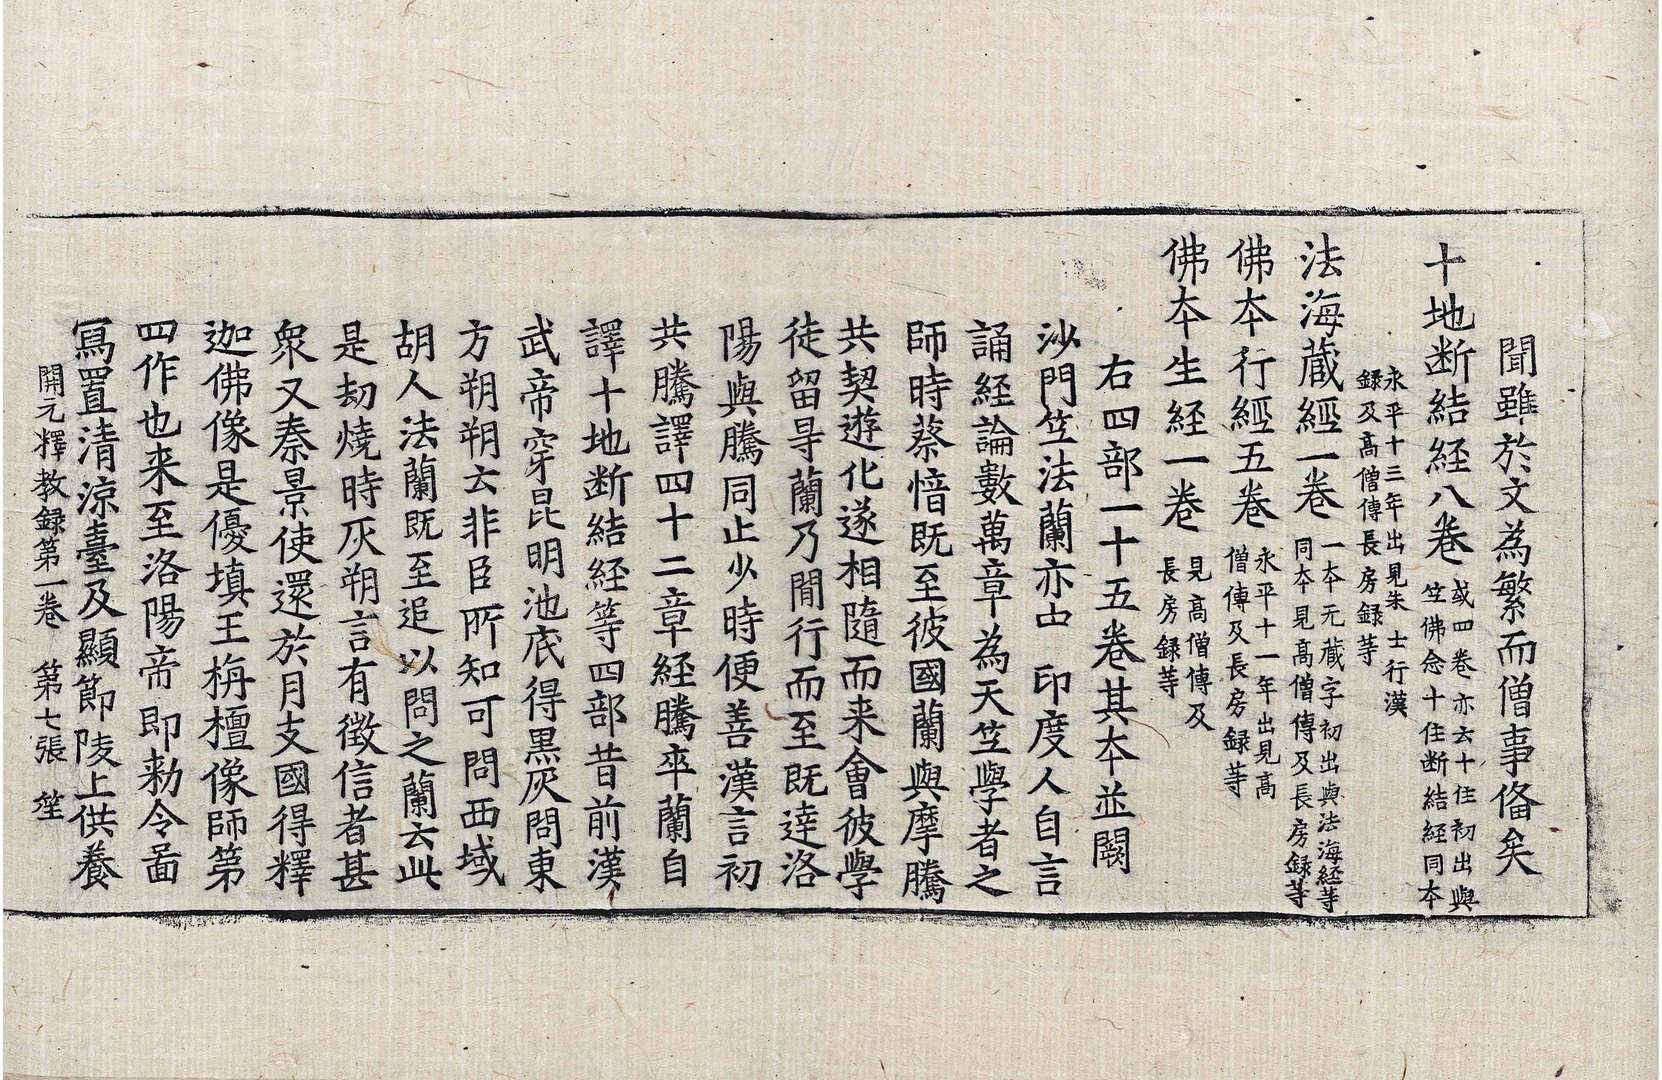 聞雖於文為繁而僧事俻矣
十地断結経八卷 或四卷亦云十住初出與
笁佛念十住断結經同本
永平十三年出見朱士行漢
録及高僧傳長房録等
法海蔵經一卷 一本无蔵字初出與法海経等
同本見高僧傳及長房録等
佛本行經五卷 永平十一年出見高
僧傳及長房録等
佛本生経一卷 見高僧傳及
長房録等
右四部一十五卷其本並闕
沙門笁法蘭亦 印度人自言
誦経論數萬章為天笁學者之
師時蔡愔既至彼國蘭與摩騰
共契遊化遂相隨而来會彼學
徒留㝵蘭乃閒行而至既達洛
陽與騰同止少時便善漢言初
共騰譯四十二章経騰卒蘭自
譯十地断結経等四部昔前漢
武帝穿昆明池底得黒灰問東
方朔朔云非臣所知可問西域
胡人法蘭既至追以問之蘭云此
是劫燒時灰朔言有徵信者甚
衆又秦景使還於月支國得釋
迦佛像是優填王栴檀像師第
四作也来至洛陽帝即勑令啚
寫置清涼臺及顯節陵上供養
開元釋教録第一卷 第七張 笙